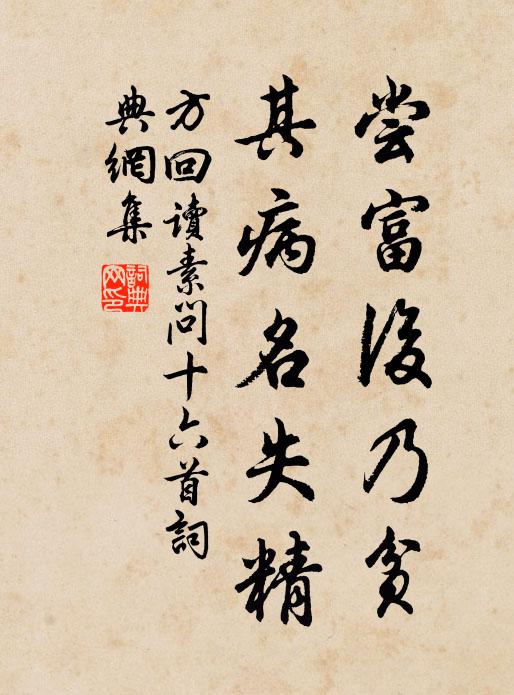 尝富后乃贫
其病名失精
方回读素問十六首詞
典網集
詞典网印